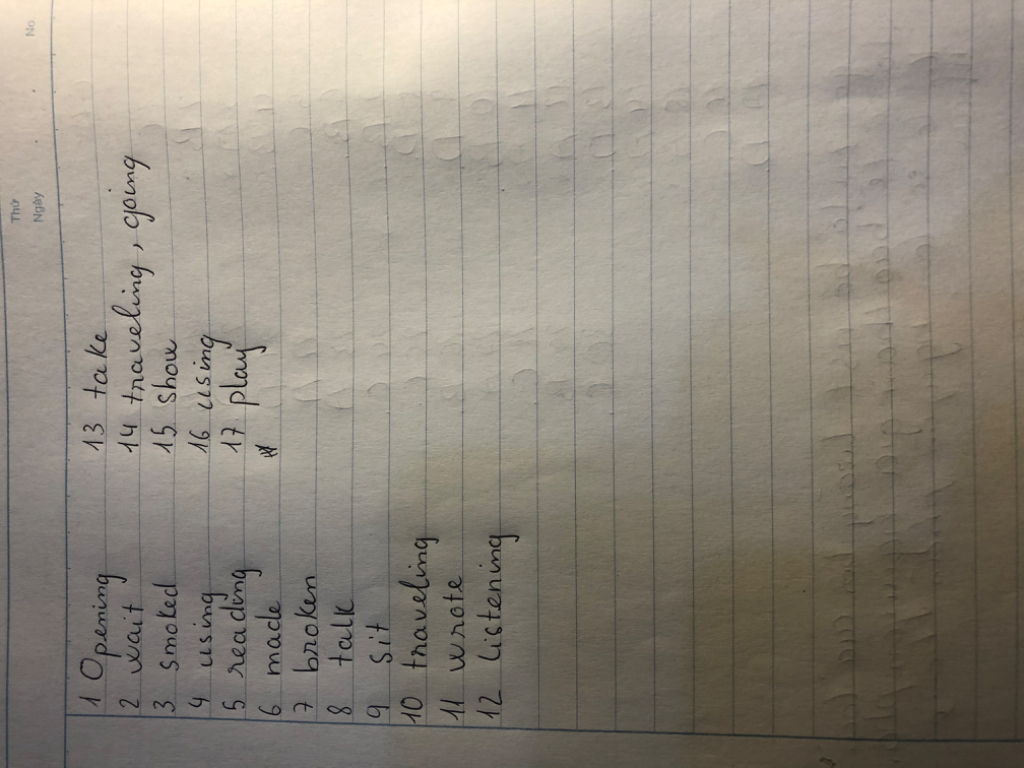 Thứ
Ngày
No.
1 Opening
2 wait
3 smoked
4 using
5 reading
6 made
7 broken
8 talk
9 sit
10 traveling
11 wrote
12 listening
13 take
14 traveling, going
15 show
16 using
17 play